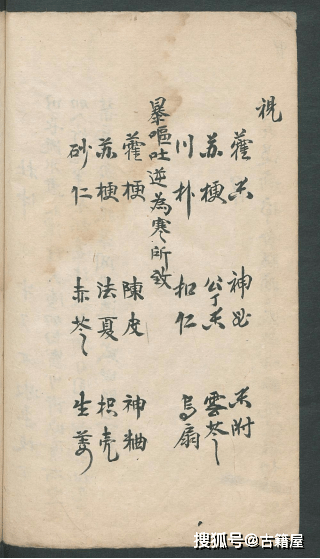 視
藿香 神 香附
苏梗 公丁香 雲苓
川朴 扣仁 烏扇
暴嘔吐逆為寒所致
藿梗 陳皮 神粬
苏梗 法夏 枳壳
砂仁 赤苓 生姜
搜狐号@古籍屋